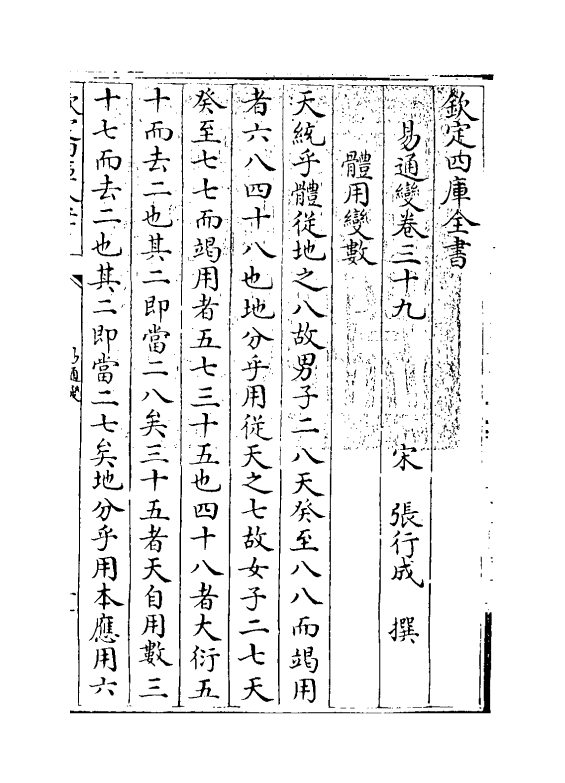 欽定四庫全書
易通變卷三十九
宋 張行成 撰
體用變數
天統乎體從地之八故男子二八天癸至八八而竭用
者六八四十八也地分乎用從天之七故女子二七天
癸至七七而竭用者五七三十五也四十八者大衍五
十而去二也其二即當二八矣三十五者天自用數三
十七而去二也其二即當二七矣地分乎用本應用六
欽定四庫全書
易通變
一